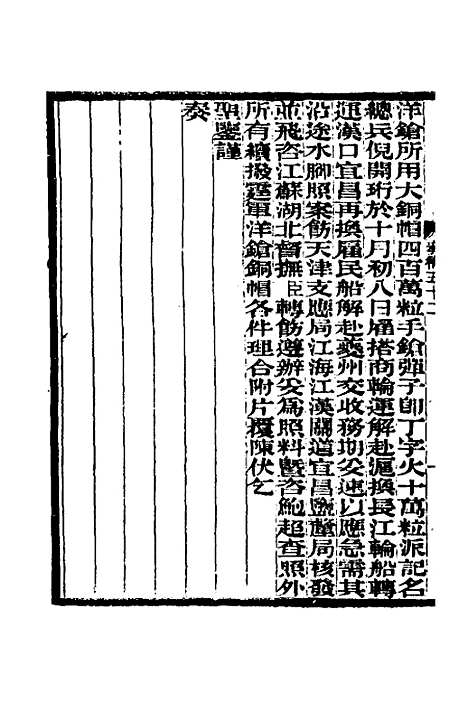 洋鎗所用大銅帽四百萬粒手鎗彈子卽丁字火十萬粒派記名
總兵倪開珩於十月初八日雇搭商輪運解赴滬換長江輪船轉
運漢口宜昌再換雇民船解赴夔州交收務期妥速以應急需其
沿途水腳照案飭天津支應局江海江漢關道宜昌鹽釐局核發
並飛咨江蘇湖北督撫臣轉飭遵辦妥為照料曁咨鮑超查照外
所有續撥霆軍洋鎗銅帽各件理合附片覆陳伏乞
聖鑒謹
奏